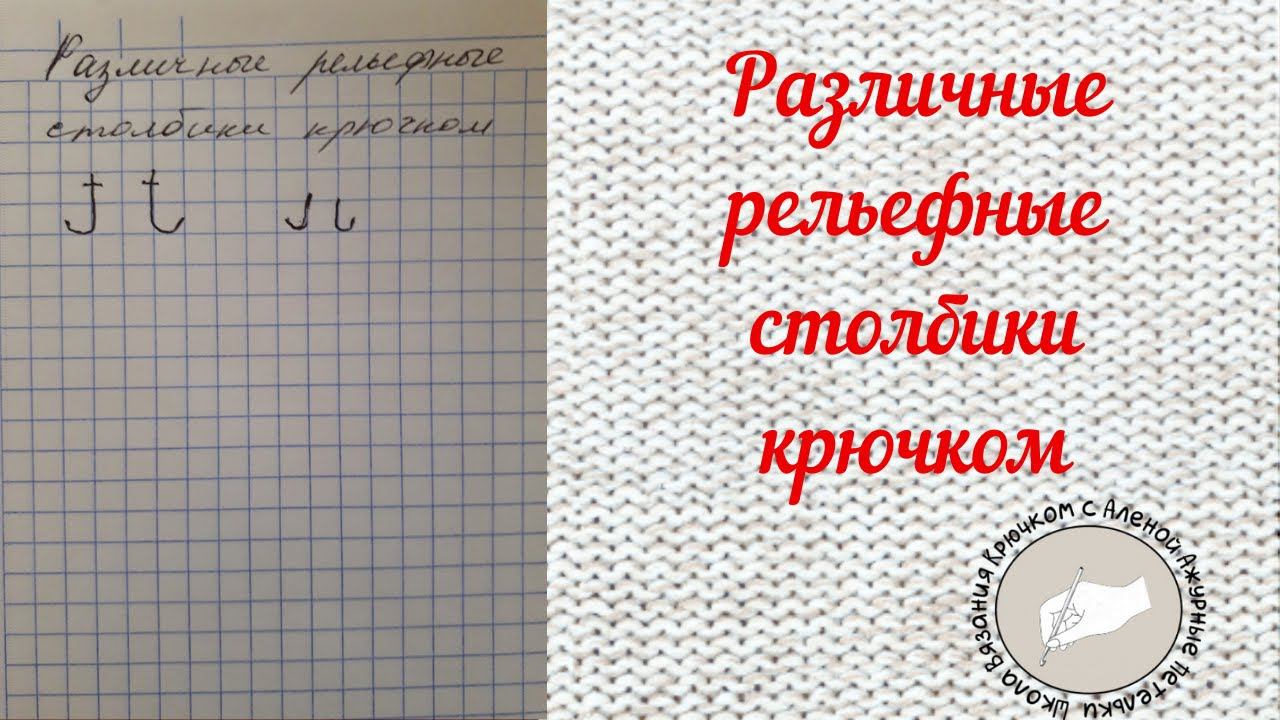 Различные рельефные
столбики крючком
Различные
рельефные
столбики
крючком
Школа Вязания Крючком с Аленой Ажурные Петельки